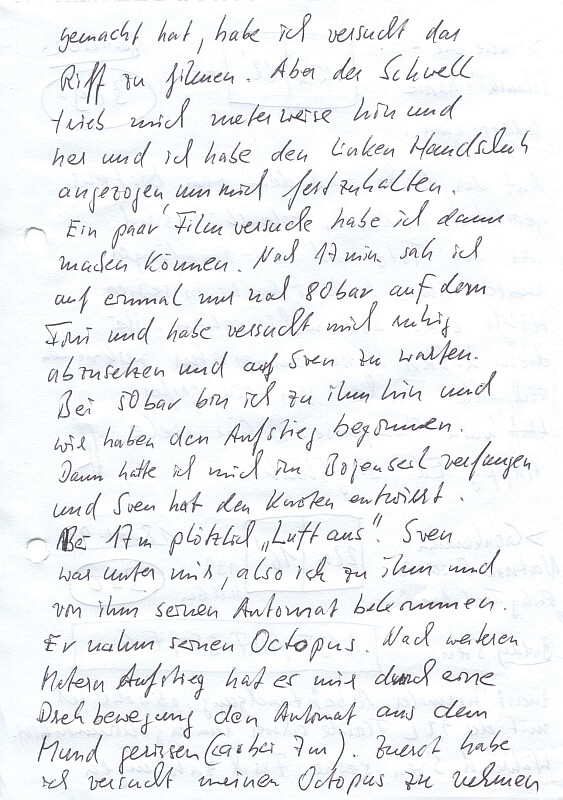 gemacht hat, habe ich versucht das
Riff zu filmen. Aber der Schwell
trieb mich meterweise hin und
her und ich habe den linken Handschuh
angezogen, um mich festzuhalten.
Ein paar Filmversuche habe ich dann
machen können. Nach 17 min sah ich
auf einmal nur noch 80 bar auf dem
Fini und habe versucht mich ruhig
abzusetzen und auf Sven zu warten.
Bei 50 bar bin ich zu ihm hin und
wir haben den Aufstieg begonnen.
Dann hatte ich mich im Bojenseil verfangen
und Sven hat den Knoten entwirrt.
Bei 17m plötzlich „Luft aus". Sven
war unter mir, also ich zu ihm und
von ihm seinen Automat bekommen.
Er nahm seinen Octopus. Nach weiteren
Metern Aufstieg hat er mir durch eine
Drehbewegung den Automat aus dem
Mund gerissen (ca bei 7m). Zuerst habe
ich versucht meinen Octopus zu nehmen